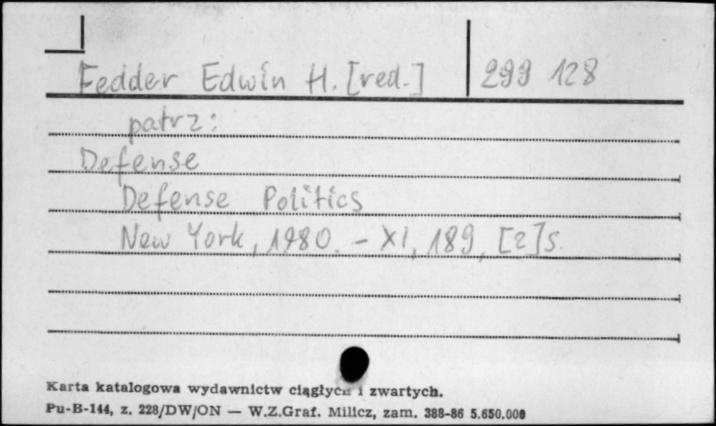 Fedder Edwin H. [red.] 299 128
patrz:
Defense
Defense Politics
New York, 1980. - XI, 189, [2]s.
Karta katalogowa wydawnictw ciągłych i zwartych.
Pu-B-144, z. 228/DW/ON — W.Z.Graf. Milicz, zam. 388-86 5.650.000